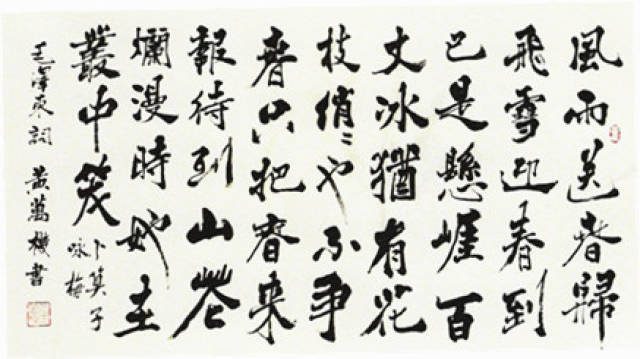 風雨送春歸
飛雪迎春到
已是懸崖百
丈冰猶有花
枝俏〻也不爭
春只把春来
報待到山花
爛漫時她在
叢中笑
卜算子
咏梅
毛澤東詞 黄萬機書